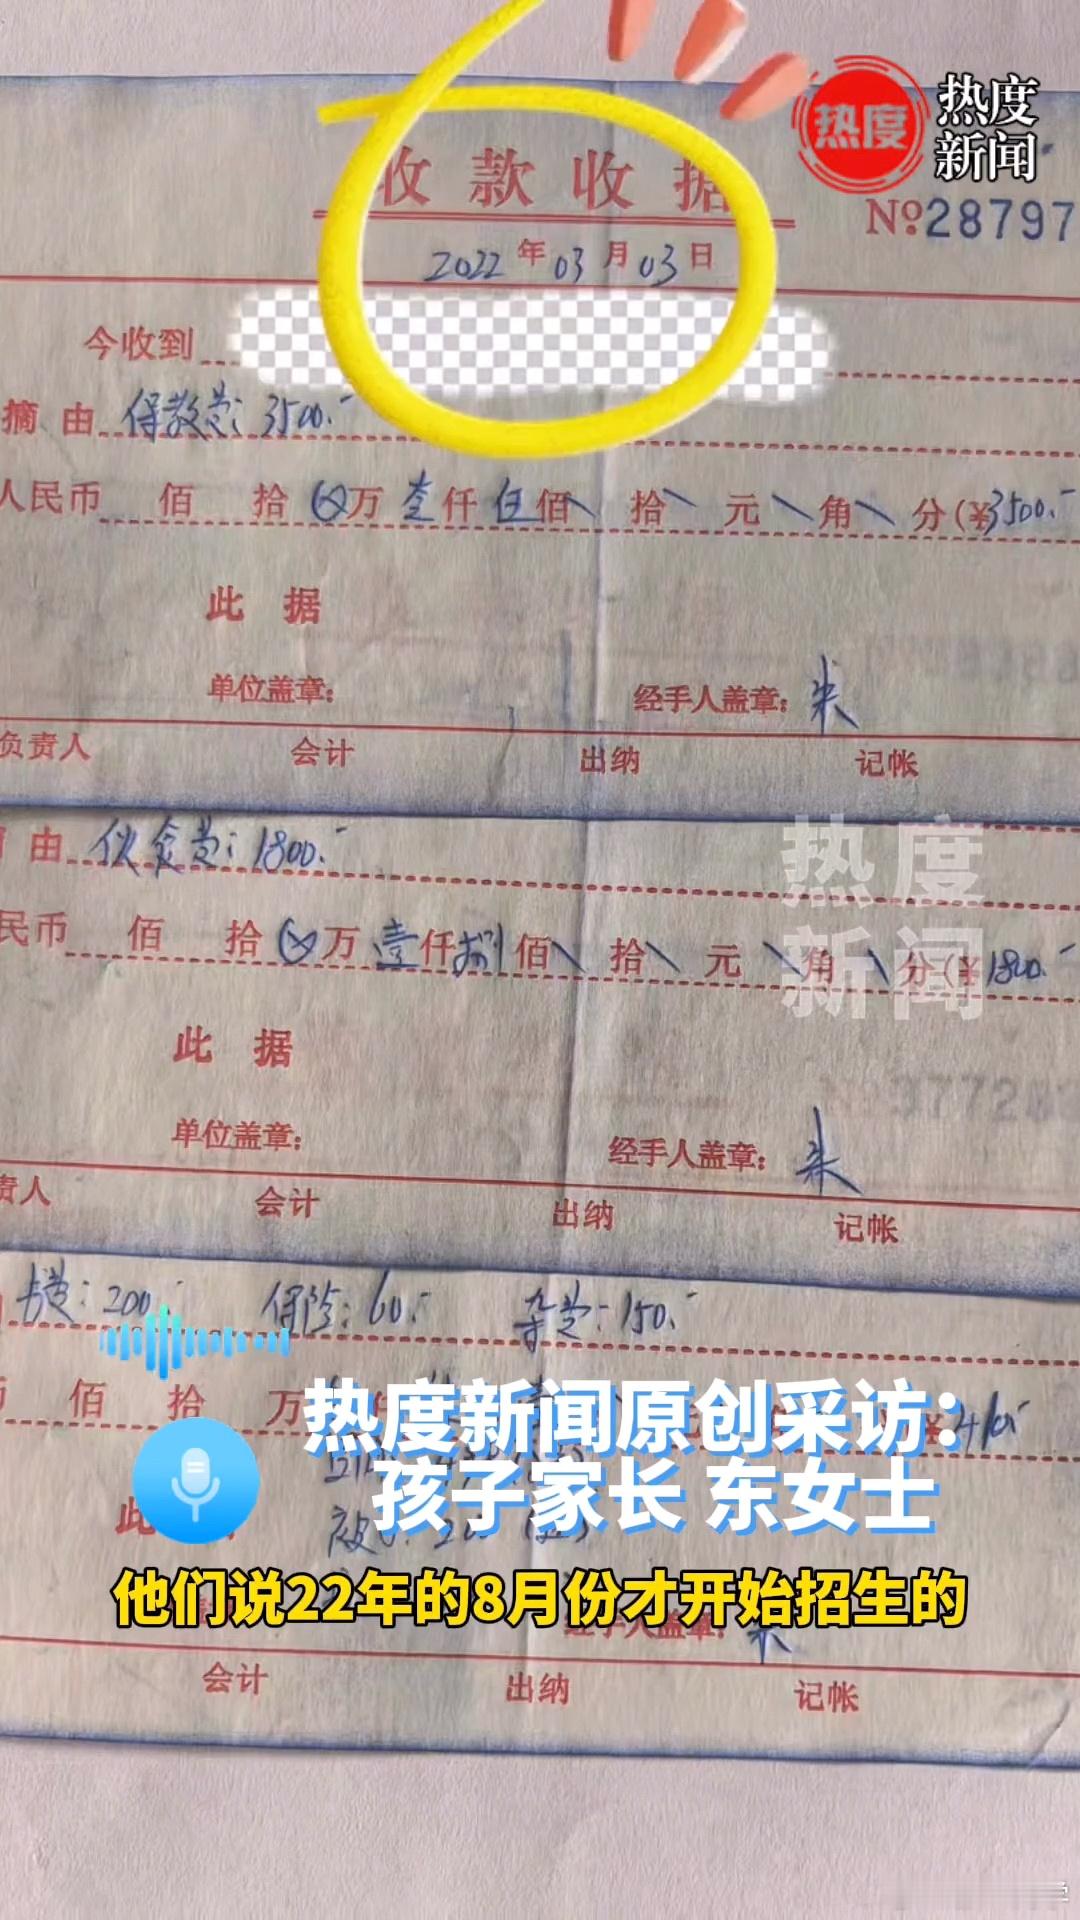 热度
热度
新闻
收款收据
№:28797
2022年03月03日
今收到
摘由 保教费:3500.-
人民币 佰 拾 万 壹仟伍佰 拾 元 角 分(¥3500.-
此据
单位盖章: 经手人盖章: 朱
负责人 会计 出纳 记帐
由 伙食费:1800.-
热度
新闻
民币 佰 拾 万 壹仟捌佰 拾 元 角 分(¥1800.-
此据
单位盖章: 经手人盖章: 朱
责人 会计 出纳 记帐
费:200.- 保险:60.- 杂费:150.-
佰 拾 万
热度新闻原创采访:
孩子家长 东女士
此
他们说22年的8月份才开始招生的
经手人盖章: 朱
会计 出纳 记帐